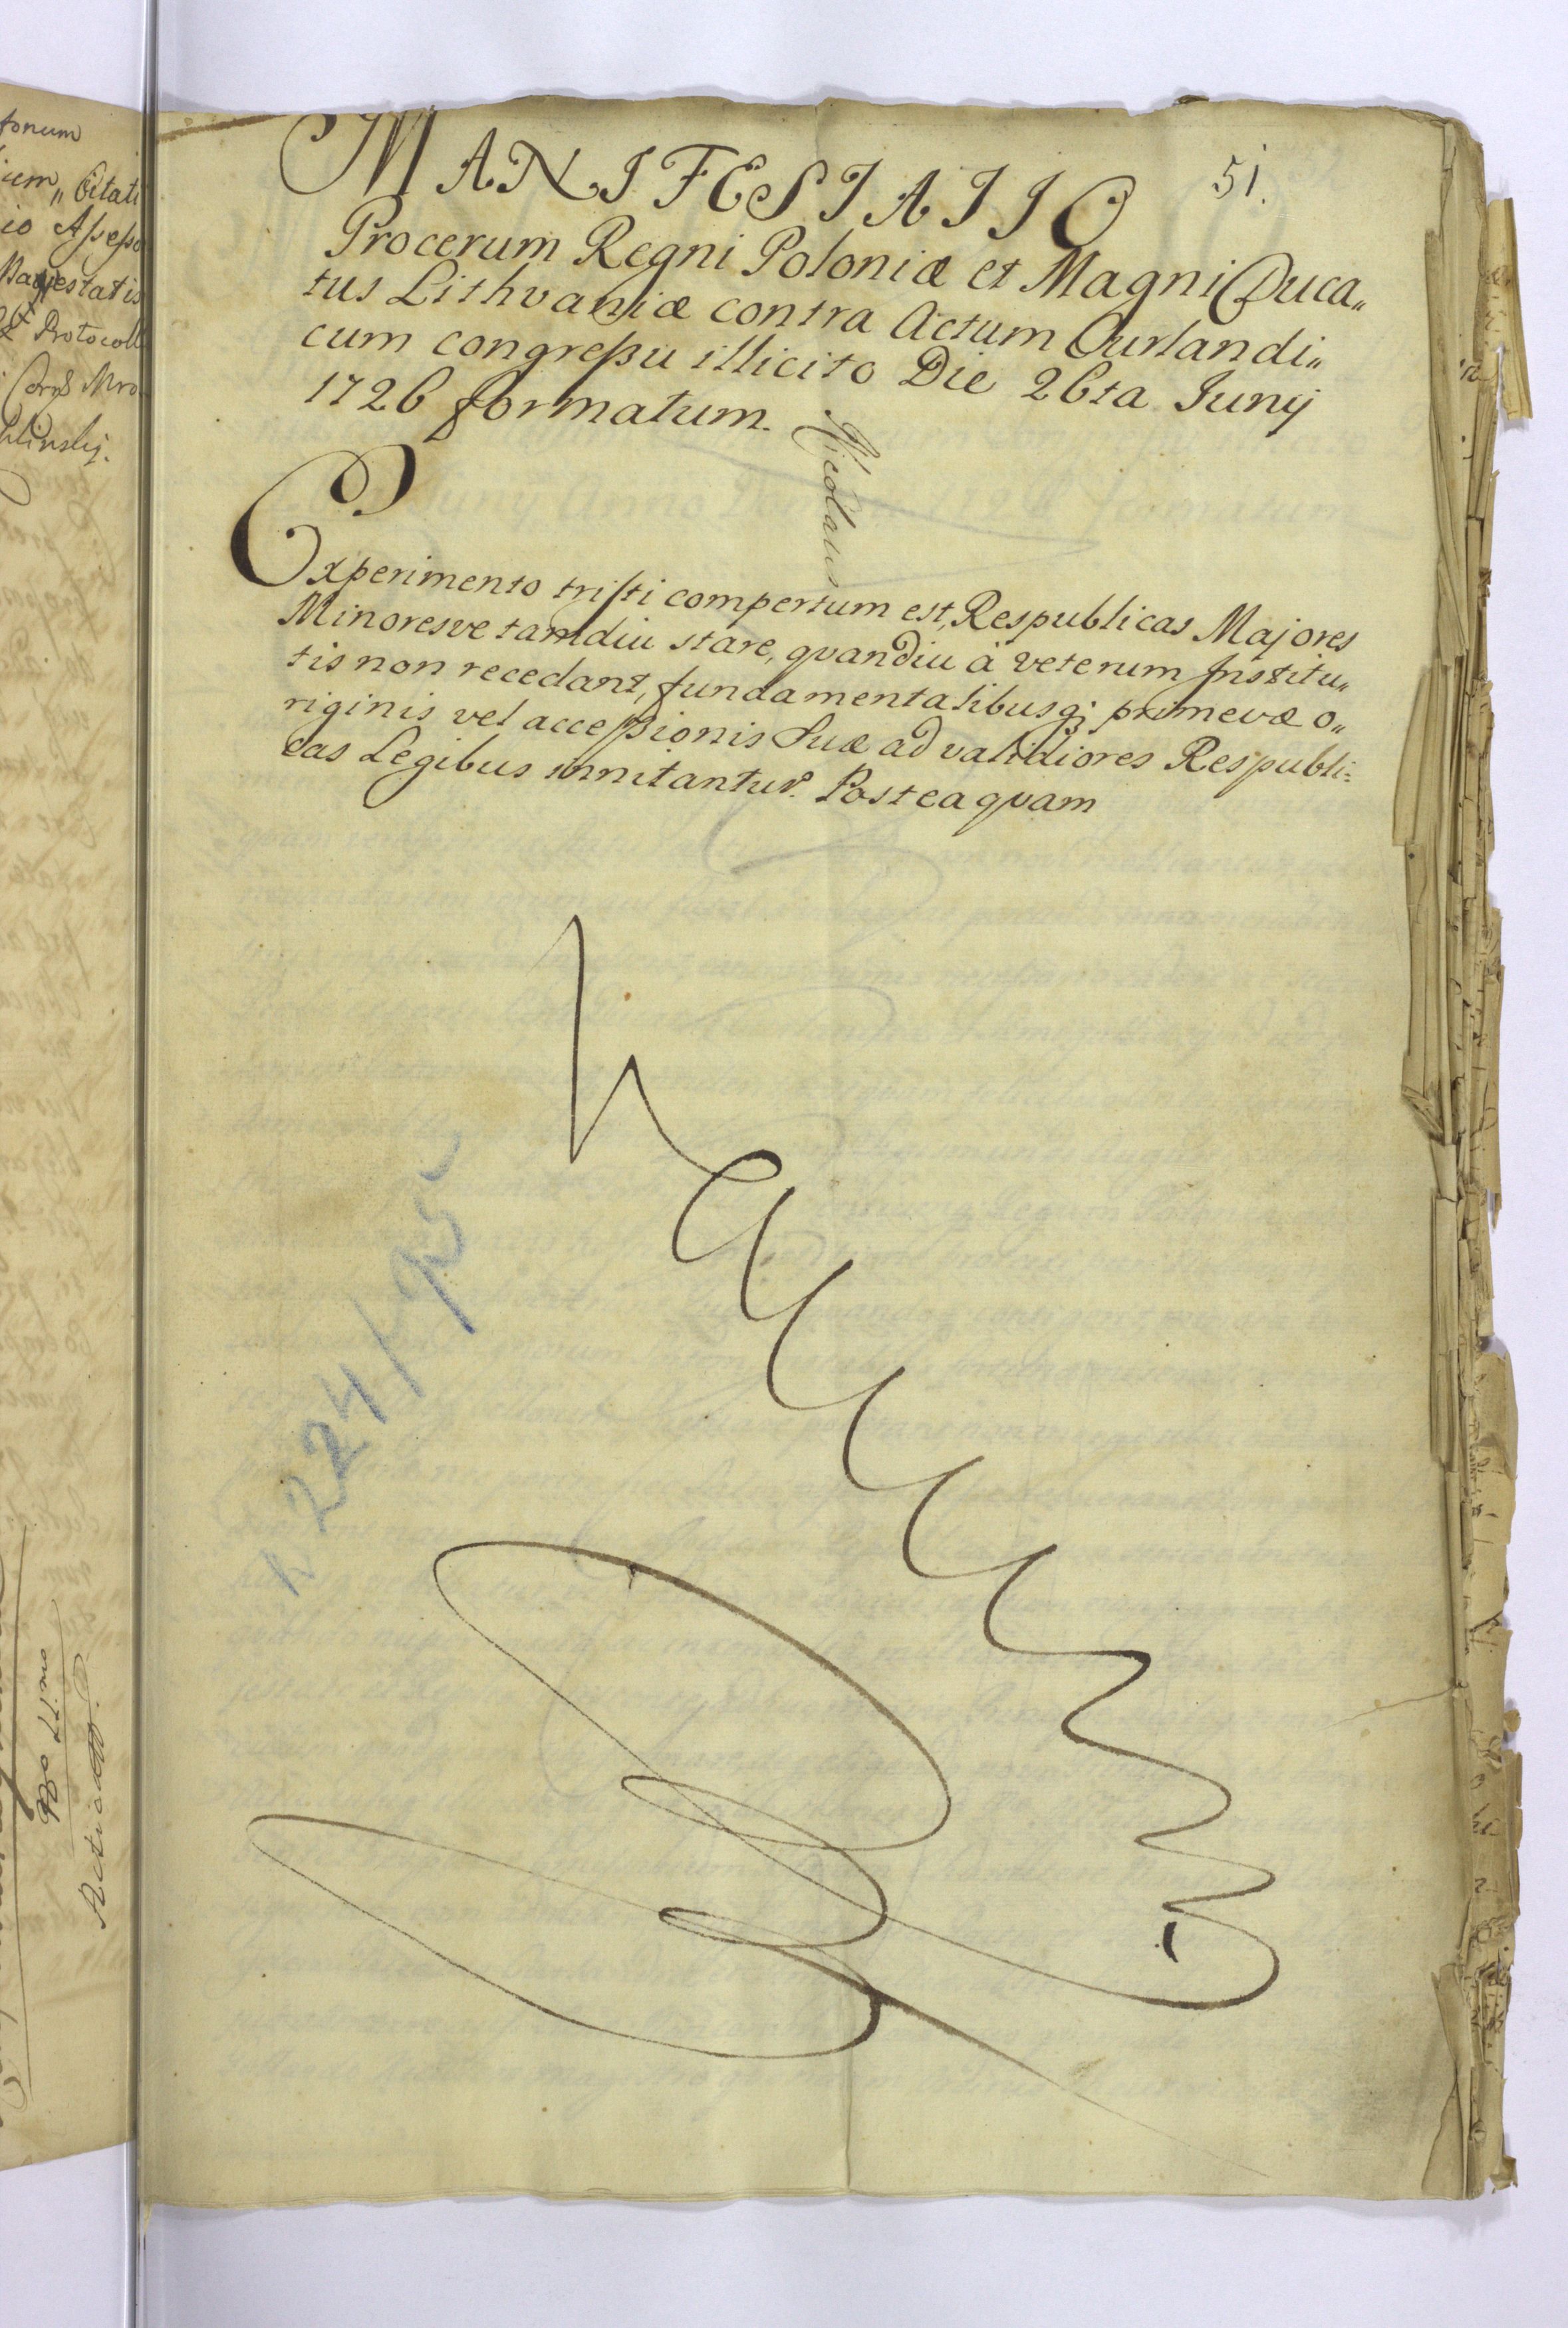 51.
MANIFESTATIO
Procerum Regni Poloniæ et Magni Duca„
tus Lithvaniæ contra Actum Curlandi„
cum congreßu illicito Die 26ta Junij
1726 formatum.
Nicolaus
Experimento tristi compertum est, Respublicas Majores
Minoresve tamdiu stare, qvandiu à veterum Institu„
tis non recedant, fundamentalibusq; primevæ o„
riginis vel acceßionis suæ ad validiores Respubli=
cas Legibus innitantur. Posteaqvam
224/95
tonum
Citati
io Aßeßo
Majestatis
Protocoll
Acticat